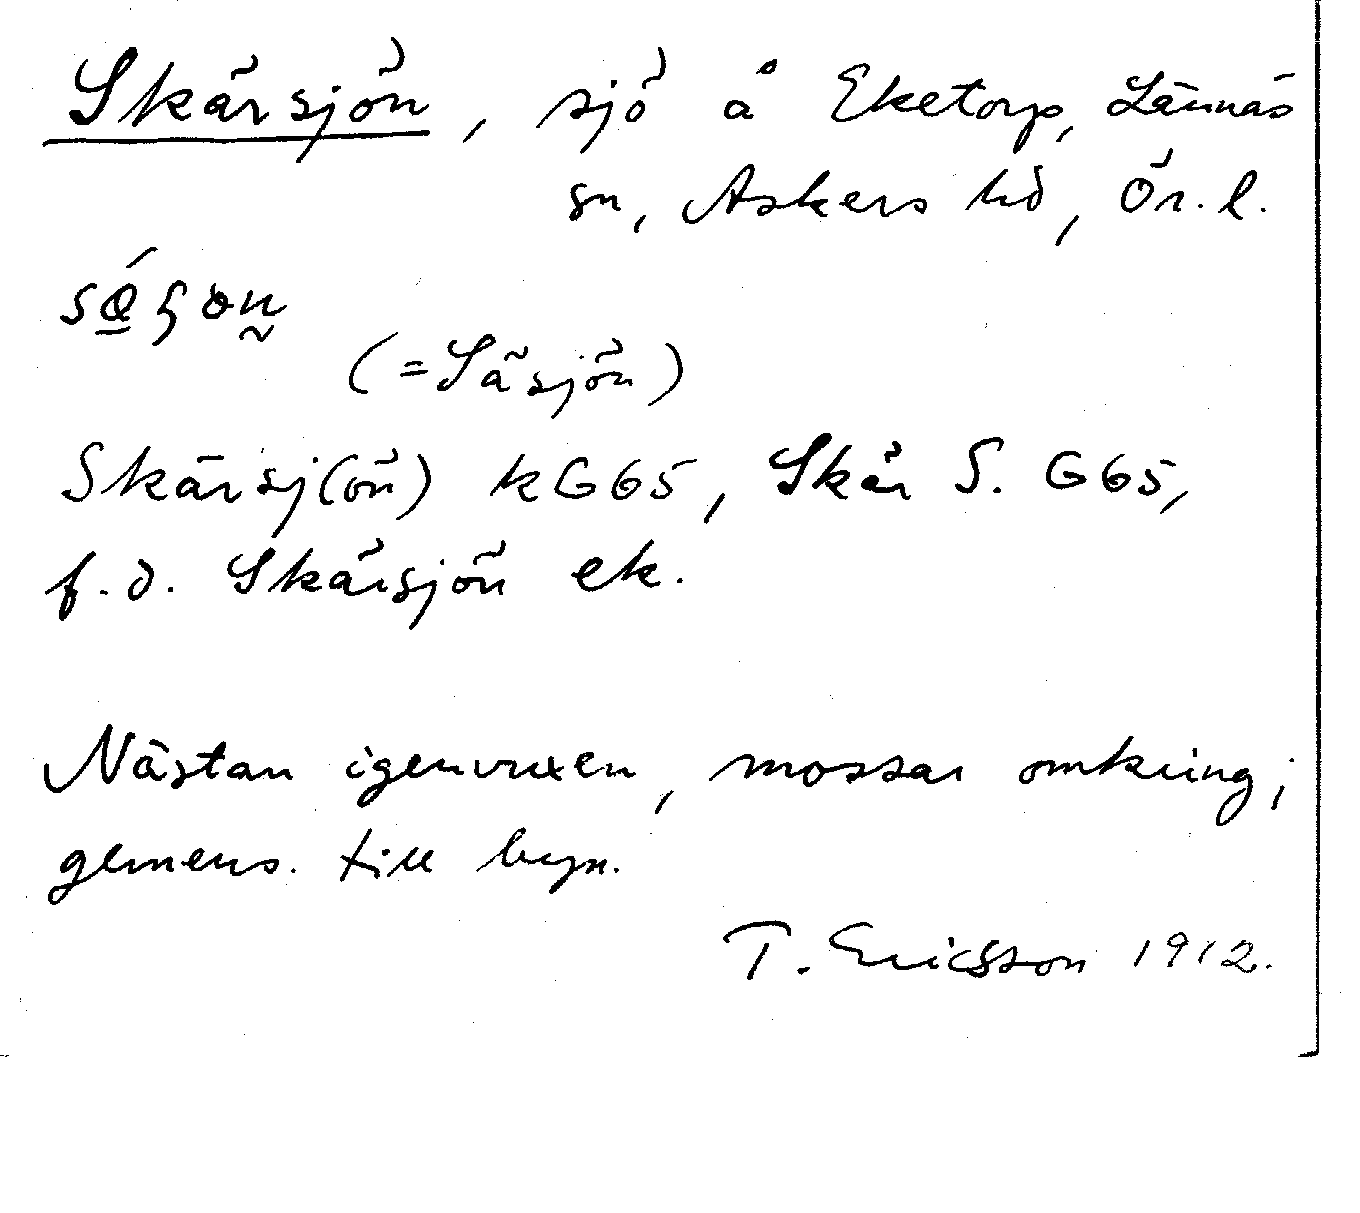 Skärsjön, sjö å Eketorp, Lännäs
sn, Askers hd, Ör. l.
(=Säsjön)
Skärsj(ön) kG65, Skär S. G65,
f.d. Skärsjön ek.
Nästan igenvuxen, mossar omkring;
gemens. till byn.
T. Ericsson 1912.